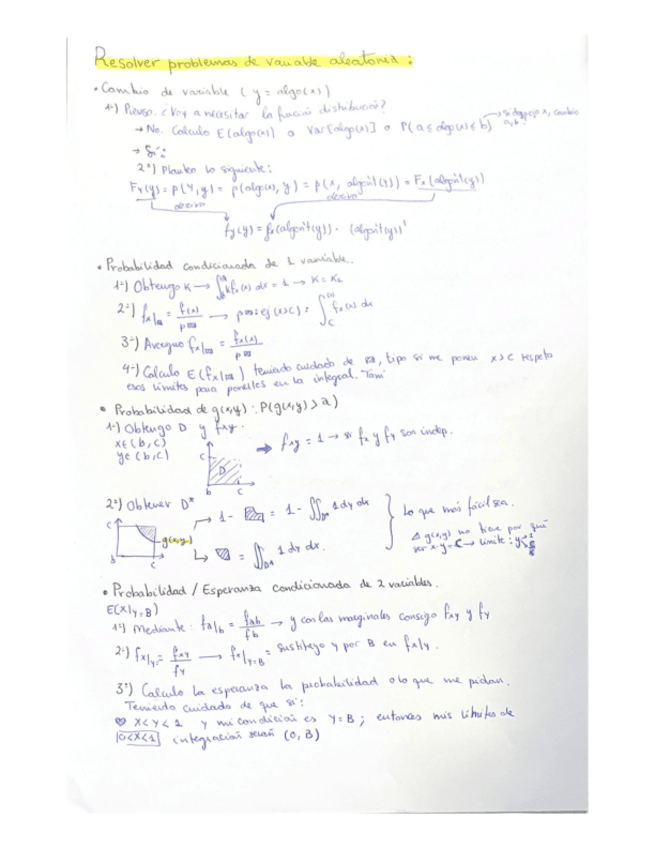 Resolver problemas de variable aleatoria:
• Cambio de variable (y = algo(x))
1º) Pienso. ¿Voy a necesitar la función distribución?
→ No. Calculo E(algo(x)) o Var[algo(x)] o P(a ≤ algo(x) ≤ b) → Si despejo x, cambio a, b.
→ Sí:
2º) Planteo lo siguiente:
F_Y(y) = P(Y, y) = P(algo(x), y) = P(x, algo(y)) = F_X(algo(y))
derivo derivo
f_Y(y) = f_X(algo(y)) · (algo(y))'
• Probabilidad condicionada de 1 variable.
1º) Obtengo K → ∫ K f_x(x) dx = 1 → K = K₁
2º) = f(x) / p → p = ej(x>c) = ∫ f_x(x) dx
3º) Averiguo = f_x(x) / p
4º) Calculo E(f_x|) teniendo cuidado de, tipo si me ponen x > c respeto
esos límites para ponerlos en la integral.
• Probabilidad de g(x,y): P(g(x,y) > a)
1º) Obtengo D y f_xy.
x ∈ (b, c)
y ∈ (b, c)
c D b c
⇒ f_xy = 1 → si f_x y f_y son indep.
2º) Obtener D*
c b c g(x,y)
→ 1 - = 1 - ∬_D* 1 dy dx
↳ = ∬_D* 1 dy dx.
Lo que más fácil sea.
Δ g(x,y) no tiene por qué
ser x·y = C → límite: y
• Probabilidad / Esperanza condicionada de 2 variables.
E(X|y=B)
1º) Mediante: f_a|b = f_ab / f_b → y con las marginales consigo f_xy y f_y
2º) f_x|y = f_xy / f_y → f_x|y=B = sustituyo y por B en f_x|y.
3º) Calculo la esperanza la probabilidad o lo que me pidan.
Teniendo cuidado de que si:
♡ X<Y<1 y mi condición es Y=B; entonces mis límites de
0<X<1 integración serán (0, B)